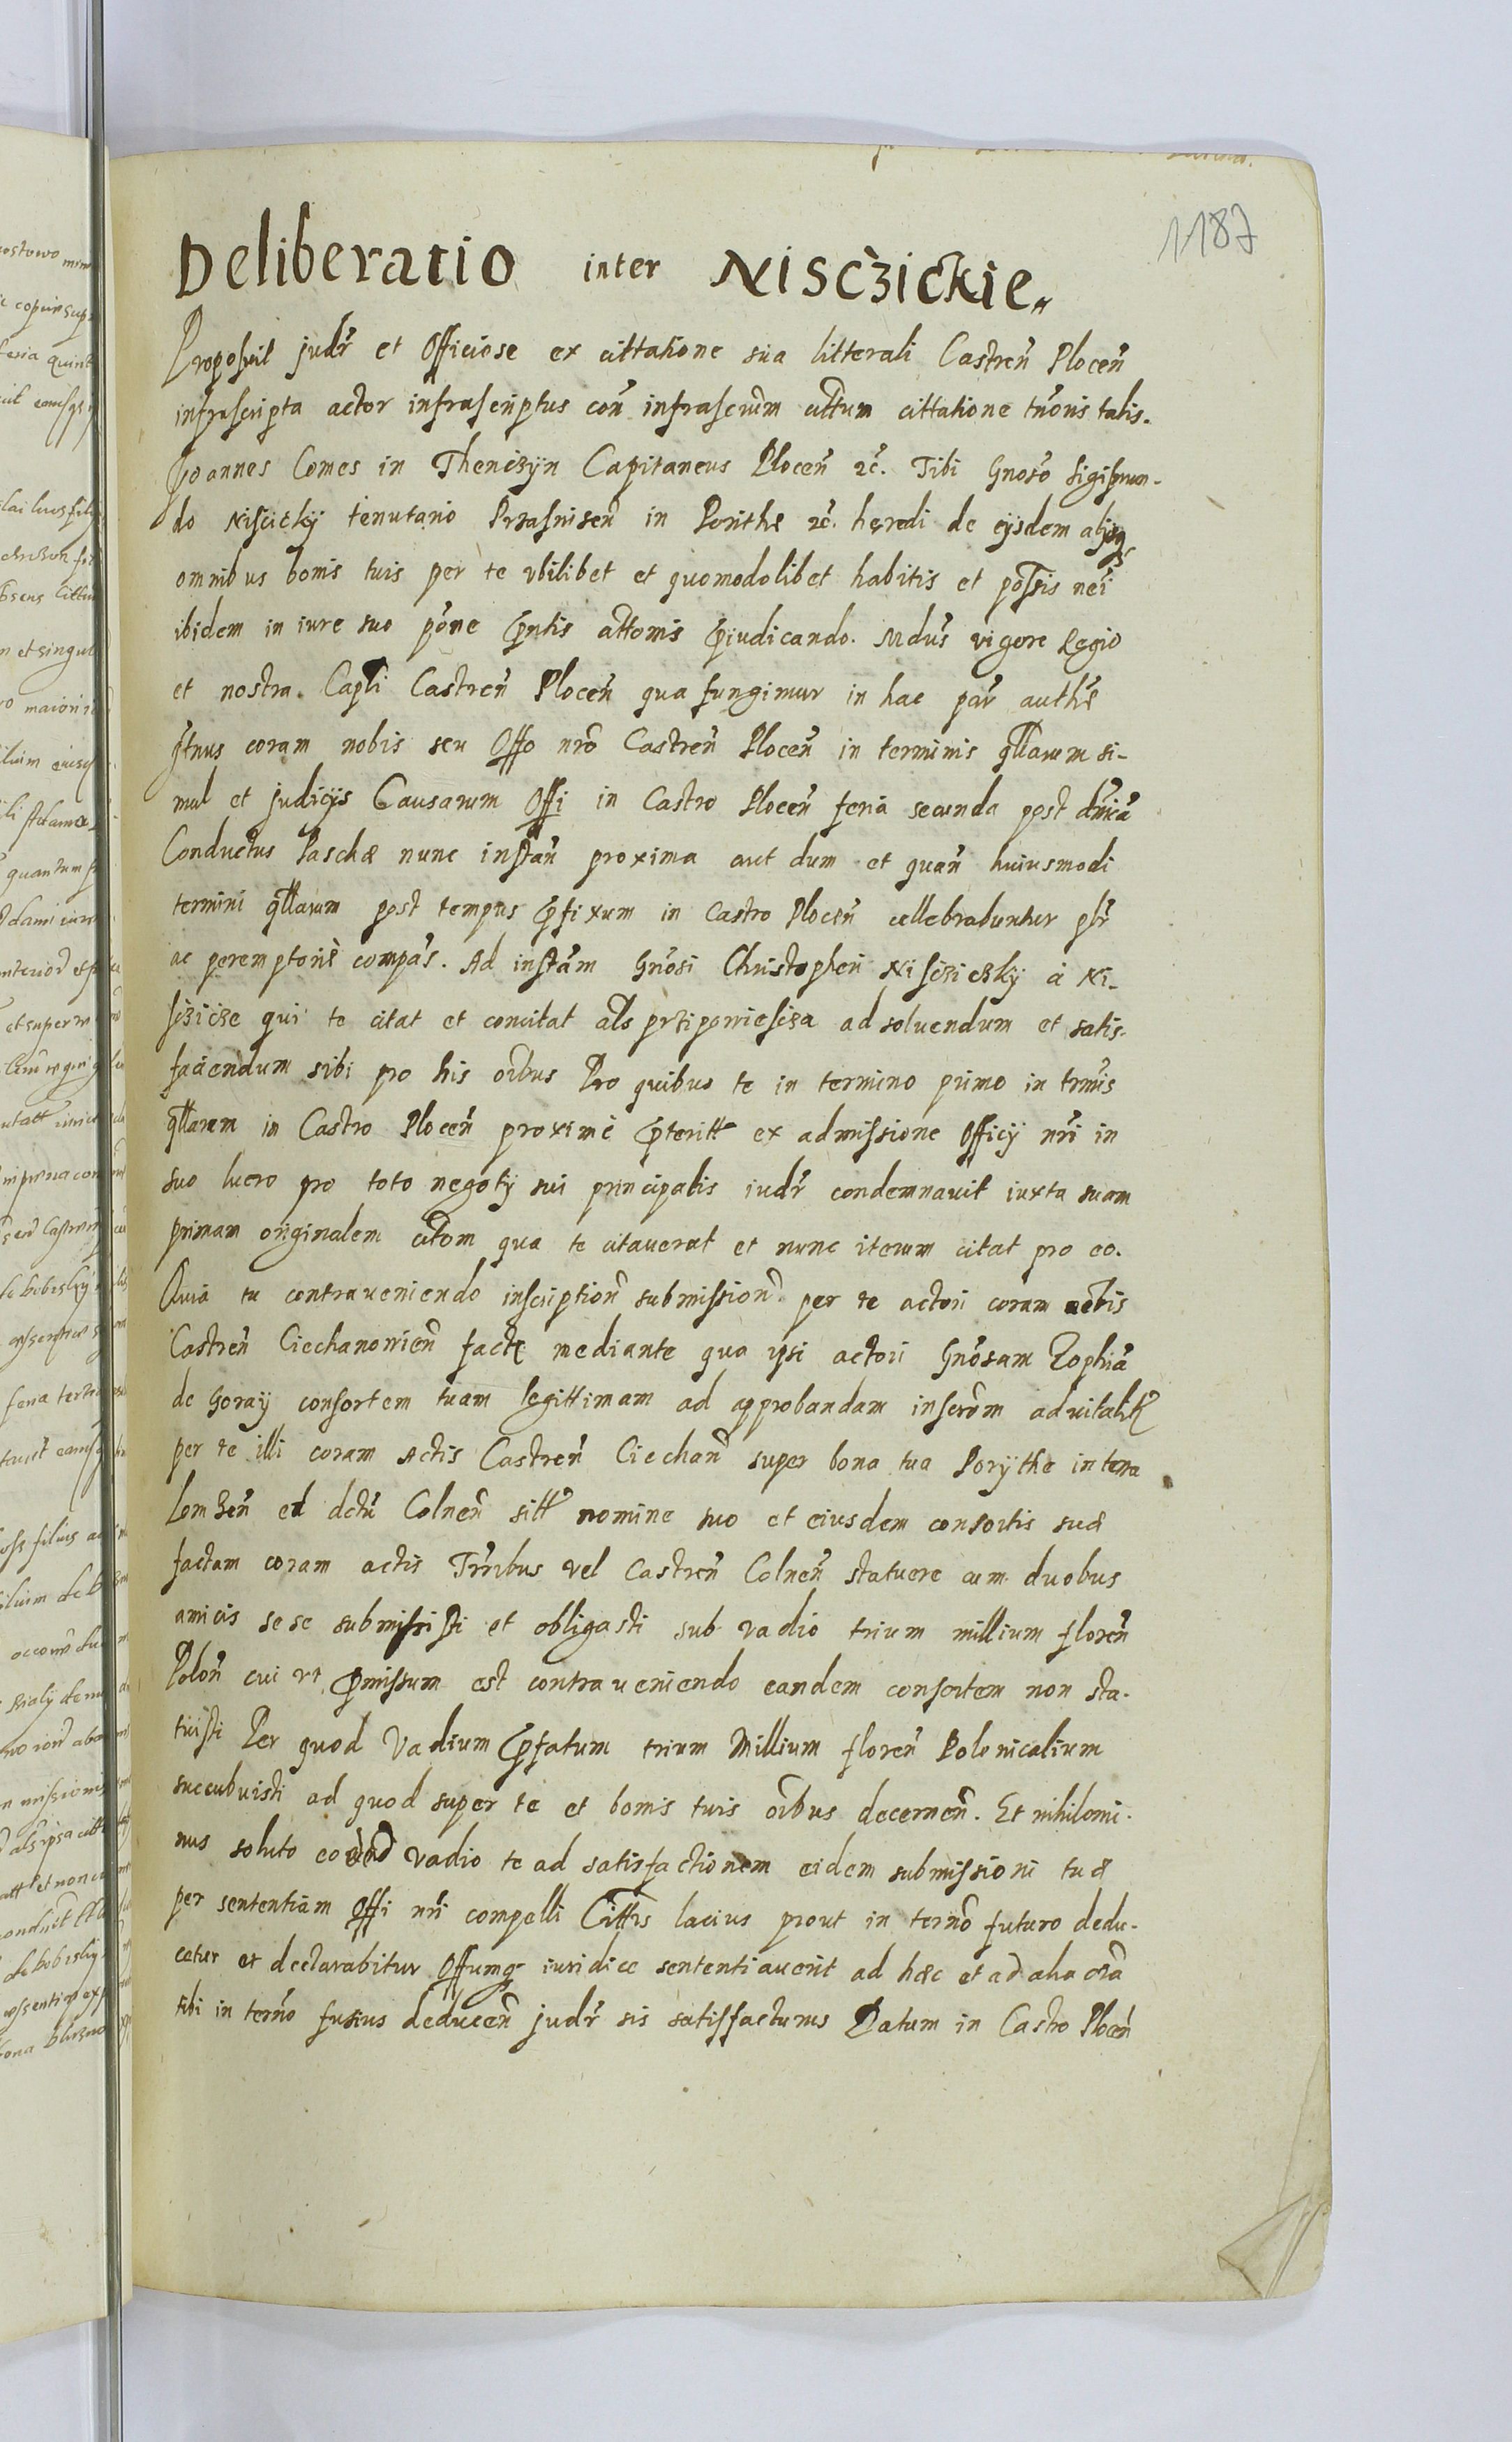 1187
Deliberatio inter Nisczickie
Proposuit judr̃ et Officiose ex cittatione sua litterali Castren̄ Plocen̄
infrascripta actor infrascriptus con̄ infrascr̄m cittum cittatione tn̄oris talis.
Joannes Comes in Thenczÿn Capitaneus Plocen̄ zc̄. Tibi Gnoso Sigismun-
do Nisczicky tenutario Przasnisen̄ in Porithe zc̄. heredi de eÿsdem alÿsq
omnibus bonis tuis per te vbilibet et quomodolibet habitis et possis nēi
ibidem in iure suo pōne p̄ntis attonis p̄iudicando. Mdūs vigore Regio
et nostra Capli Castren̄ Plocen̄ qua fungimur in hac par̄ auth̄e
q̄tnus coram nobis seu Offo nrō Castren̄ Plocen̄ in terminis q̄llarum si-
mul et judicÿs Causarum Offi in Castro Plocen̄ feria secunda post dn̄icā
Conductus Paschæ nunc instan̄ proxima aut dum et quan̄ huiusmodi
termini q̄llarum post tempus p̄fixum in Castro Plocen̄ cellebrabuntur pl̄r
ac peremptoriè compās. Ad instām Gnōsi Christopheri Nisczieczkÿ à Ni-
sczicze qui te citat et concitat al̄s przipowiescza ad soluendum et satis-
faciendum sibi pro his oībus Pro quibus te in termino primo in trm̄is
q̄llarum in Castro Plocen̄ proximè p̄teritt ex admissione Officÿ nr̄i in
suo lucro pro toto negotÿ sui principalis iudr̃ condemnauit iuxta suam
primam originalem citōm qua te citauerat et nunc iterum citat pro eo.
Quia tu contraueniendo inscription̄ submission̄ per te actori coram actis
Castren̄ Ciechanowien̄ factę mediante qua ipsi actori Gnōsam Zophiā
de Goraÿ consortem tuam legittimam ad approbandam inscrōm aduitalit
per te illi coram Actis Castren̄ Ciechan̄ super bona tua Porÿthe in terra
Lomzen̄ et dctū Colnen̄ sitt nomine suo et eiusdem consortis suæ
factam coram actis Trrībus vel Castren̄ Colnen̄ statuere cum duobus
amicis sese submisisti et obligasti sub vadio trium millium floren̄
Polon̄ cui vt p̄missum est contraueniendo eandem consortem non sta-
tuisti Per quod Vadium p̄fatum trium Millium floren̄ Polonicalium
succubuisti ad quod super te et bonis tuis oībus decernen̄. Et nihilomi-
nus soluto vadio te ad satisfactionem eidem submissioni tuæ
per sententiam Offi nr̄i compelli Cittris lacius prout in ternō futuro dedu-
cetur et declarabitur Offumq iuridice sententiauerit ad hæc et ad alia oīa
tibi in ternō fusius deducen̄ judr̃ sis satisfacturus Datum in Castro Plocen̄